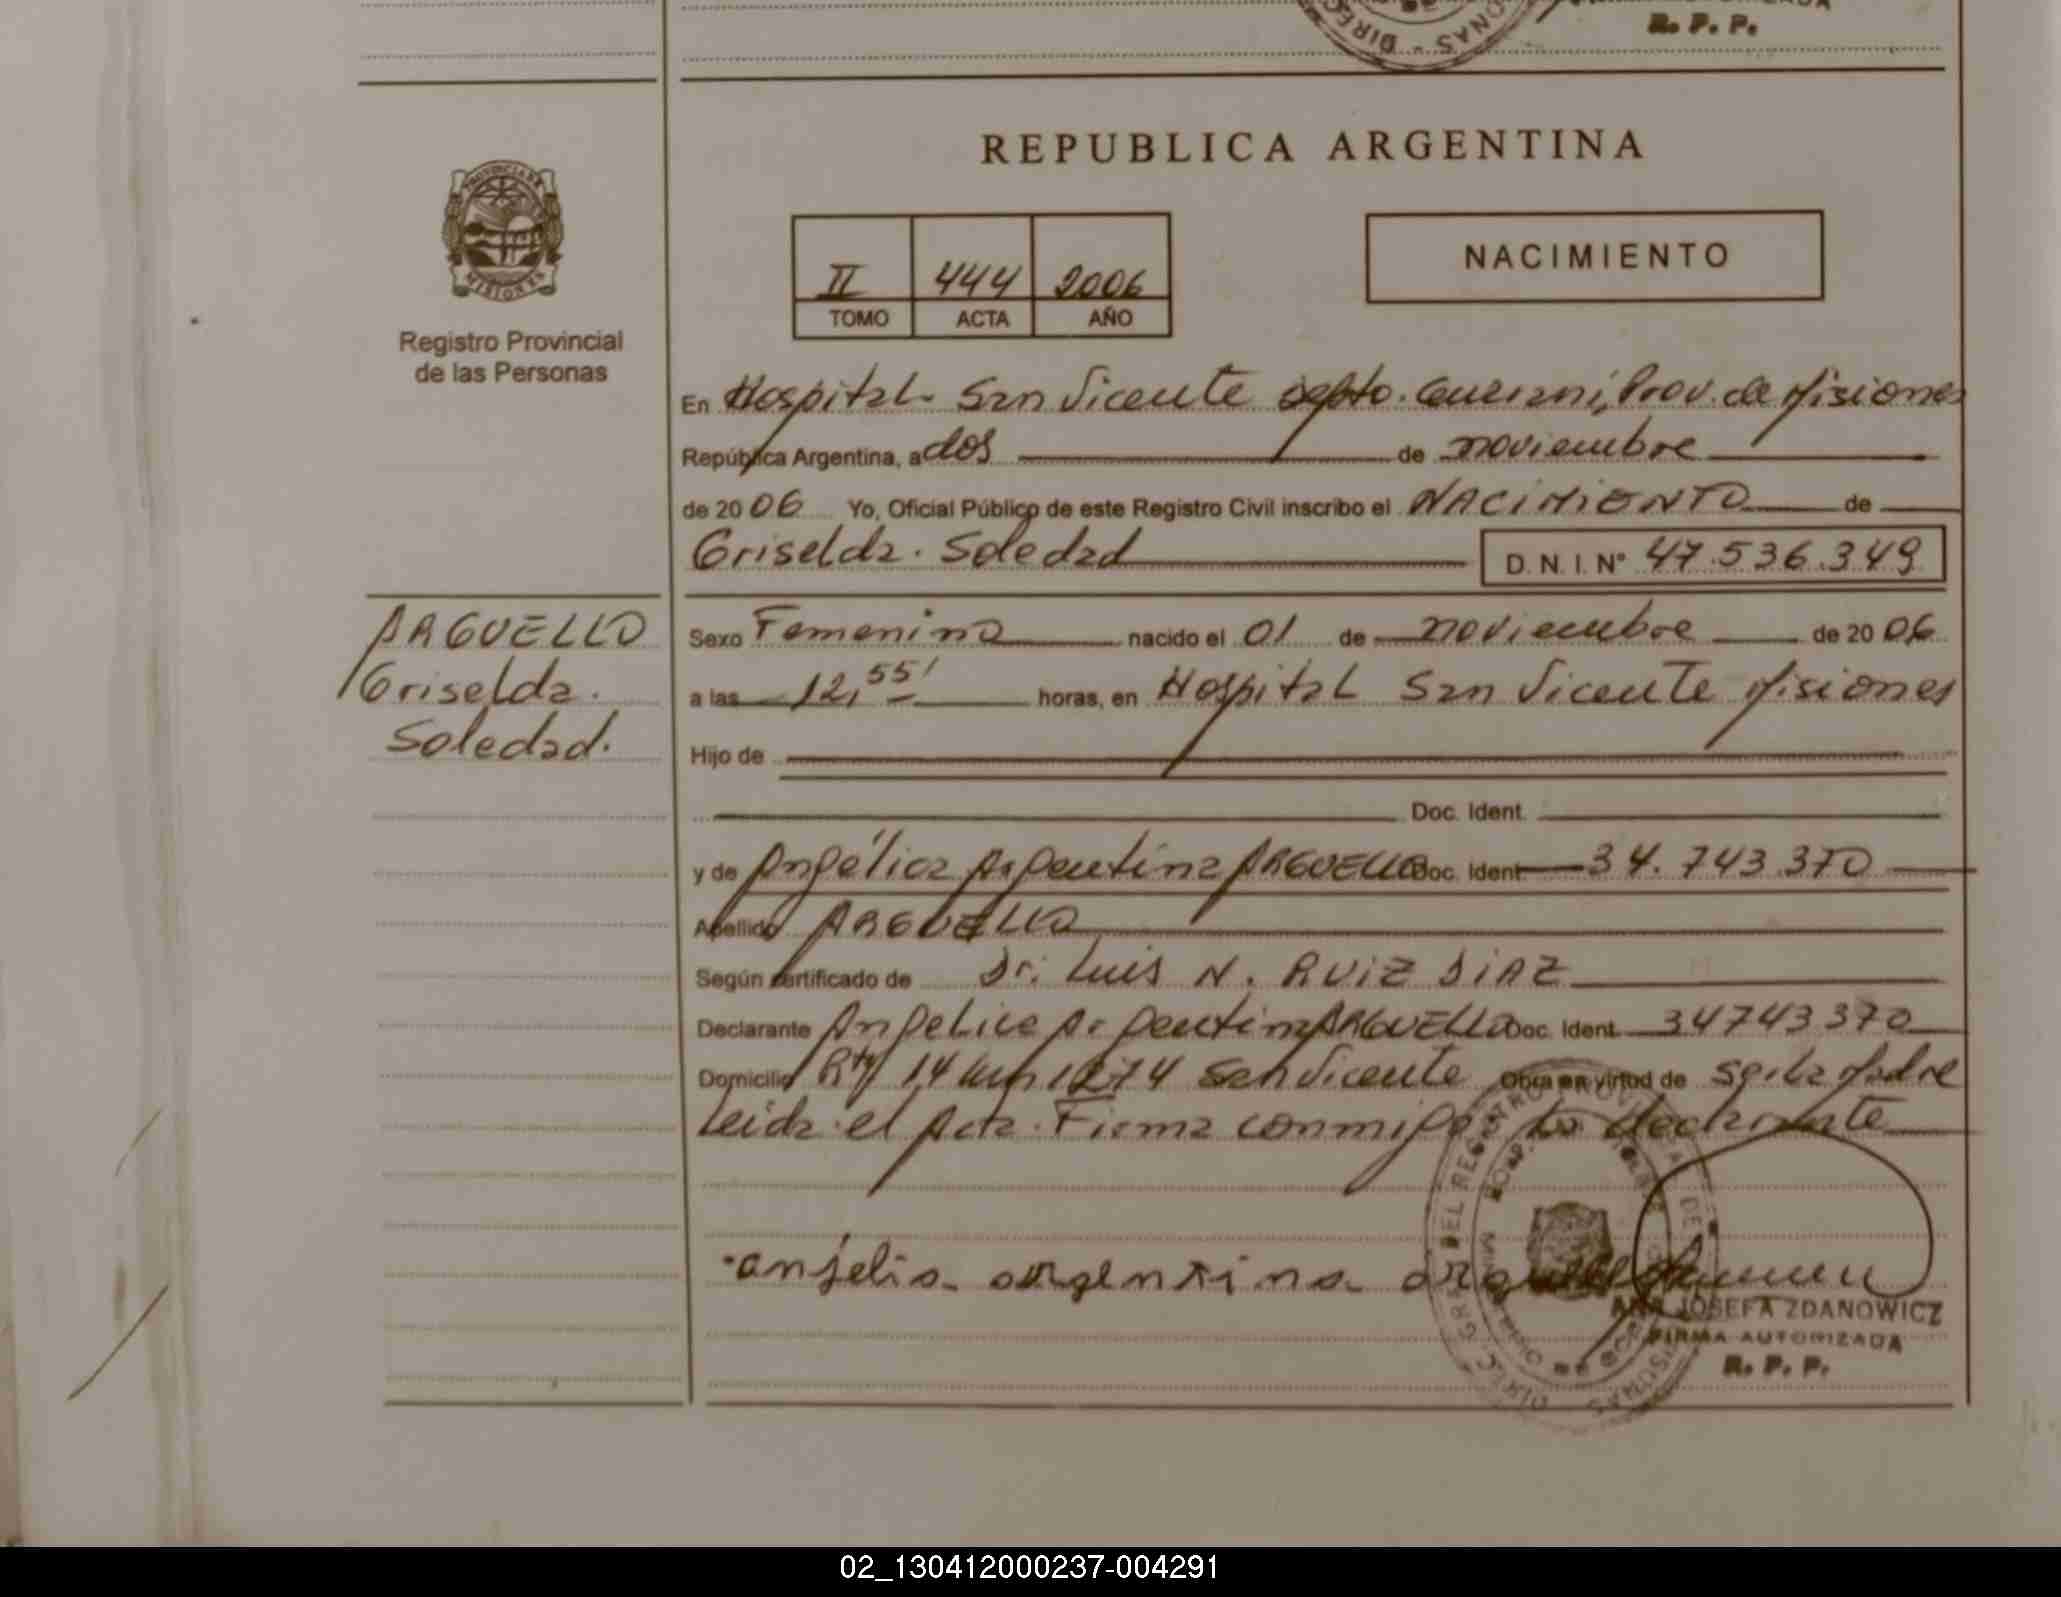 R. P. P.
REPUBLICA ARGENTINA
PROVINCIA DE MISIONES
II 444 2006
TOMO ACTA AÑO
NACIMIENTO
Registro Provincial
de las Personas
En Hospital San Vicente depto. Guaraní, Prov. de Misiones
República Argentina, a dos de noviembre
de 20 06 Yo, Oficial Público de este Registro Civil inscribo el NACIMIENTO de
Griselda Soledad D. N. I. N° 47.536.349
ARGUELLO
Griselda.
Soledad.
Sexo Femenino nacido el 01 de noviembre de 20 06
a las 12,55' horas, en Hospital San Vicente Misiones
Hijo de
Doc. Ident.
y de Angélica Argentina ARGUELLO Doc. Ident 34.743.370
Apellido ARGUELLO
Según certificado de Dr. Luis N. RUIZ DIAZ
Declarante Angelica Argentina ARGUELLO Doc. Ident. 34743370
Domicilio 14 Km 1274 San Vicente Obra en virtud de ser la Madre
Leida el Acta. Firma conmigo la declarante
anjelia argentina arguello
ANA JOSEFA ZDANOWICZ
FIRMA AUTORIZADA
R. P. P.
02_130412000237-004291